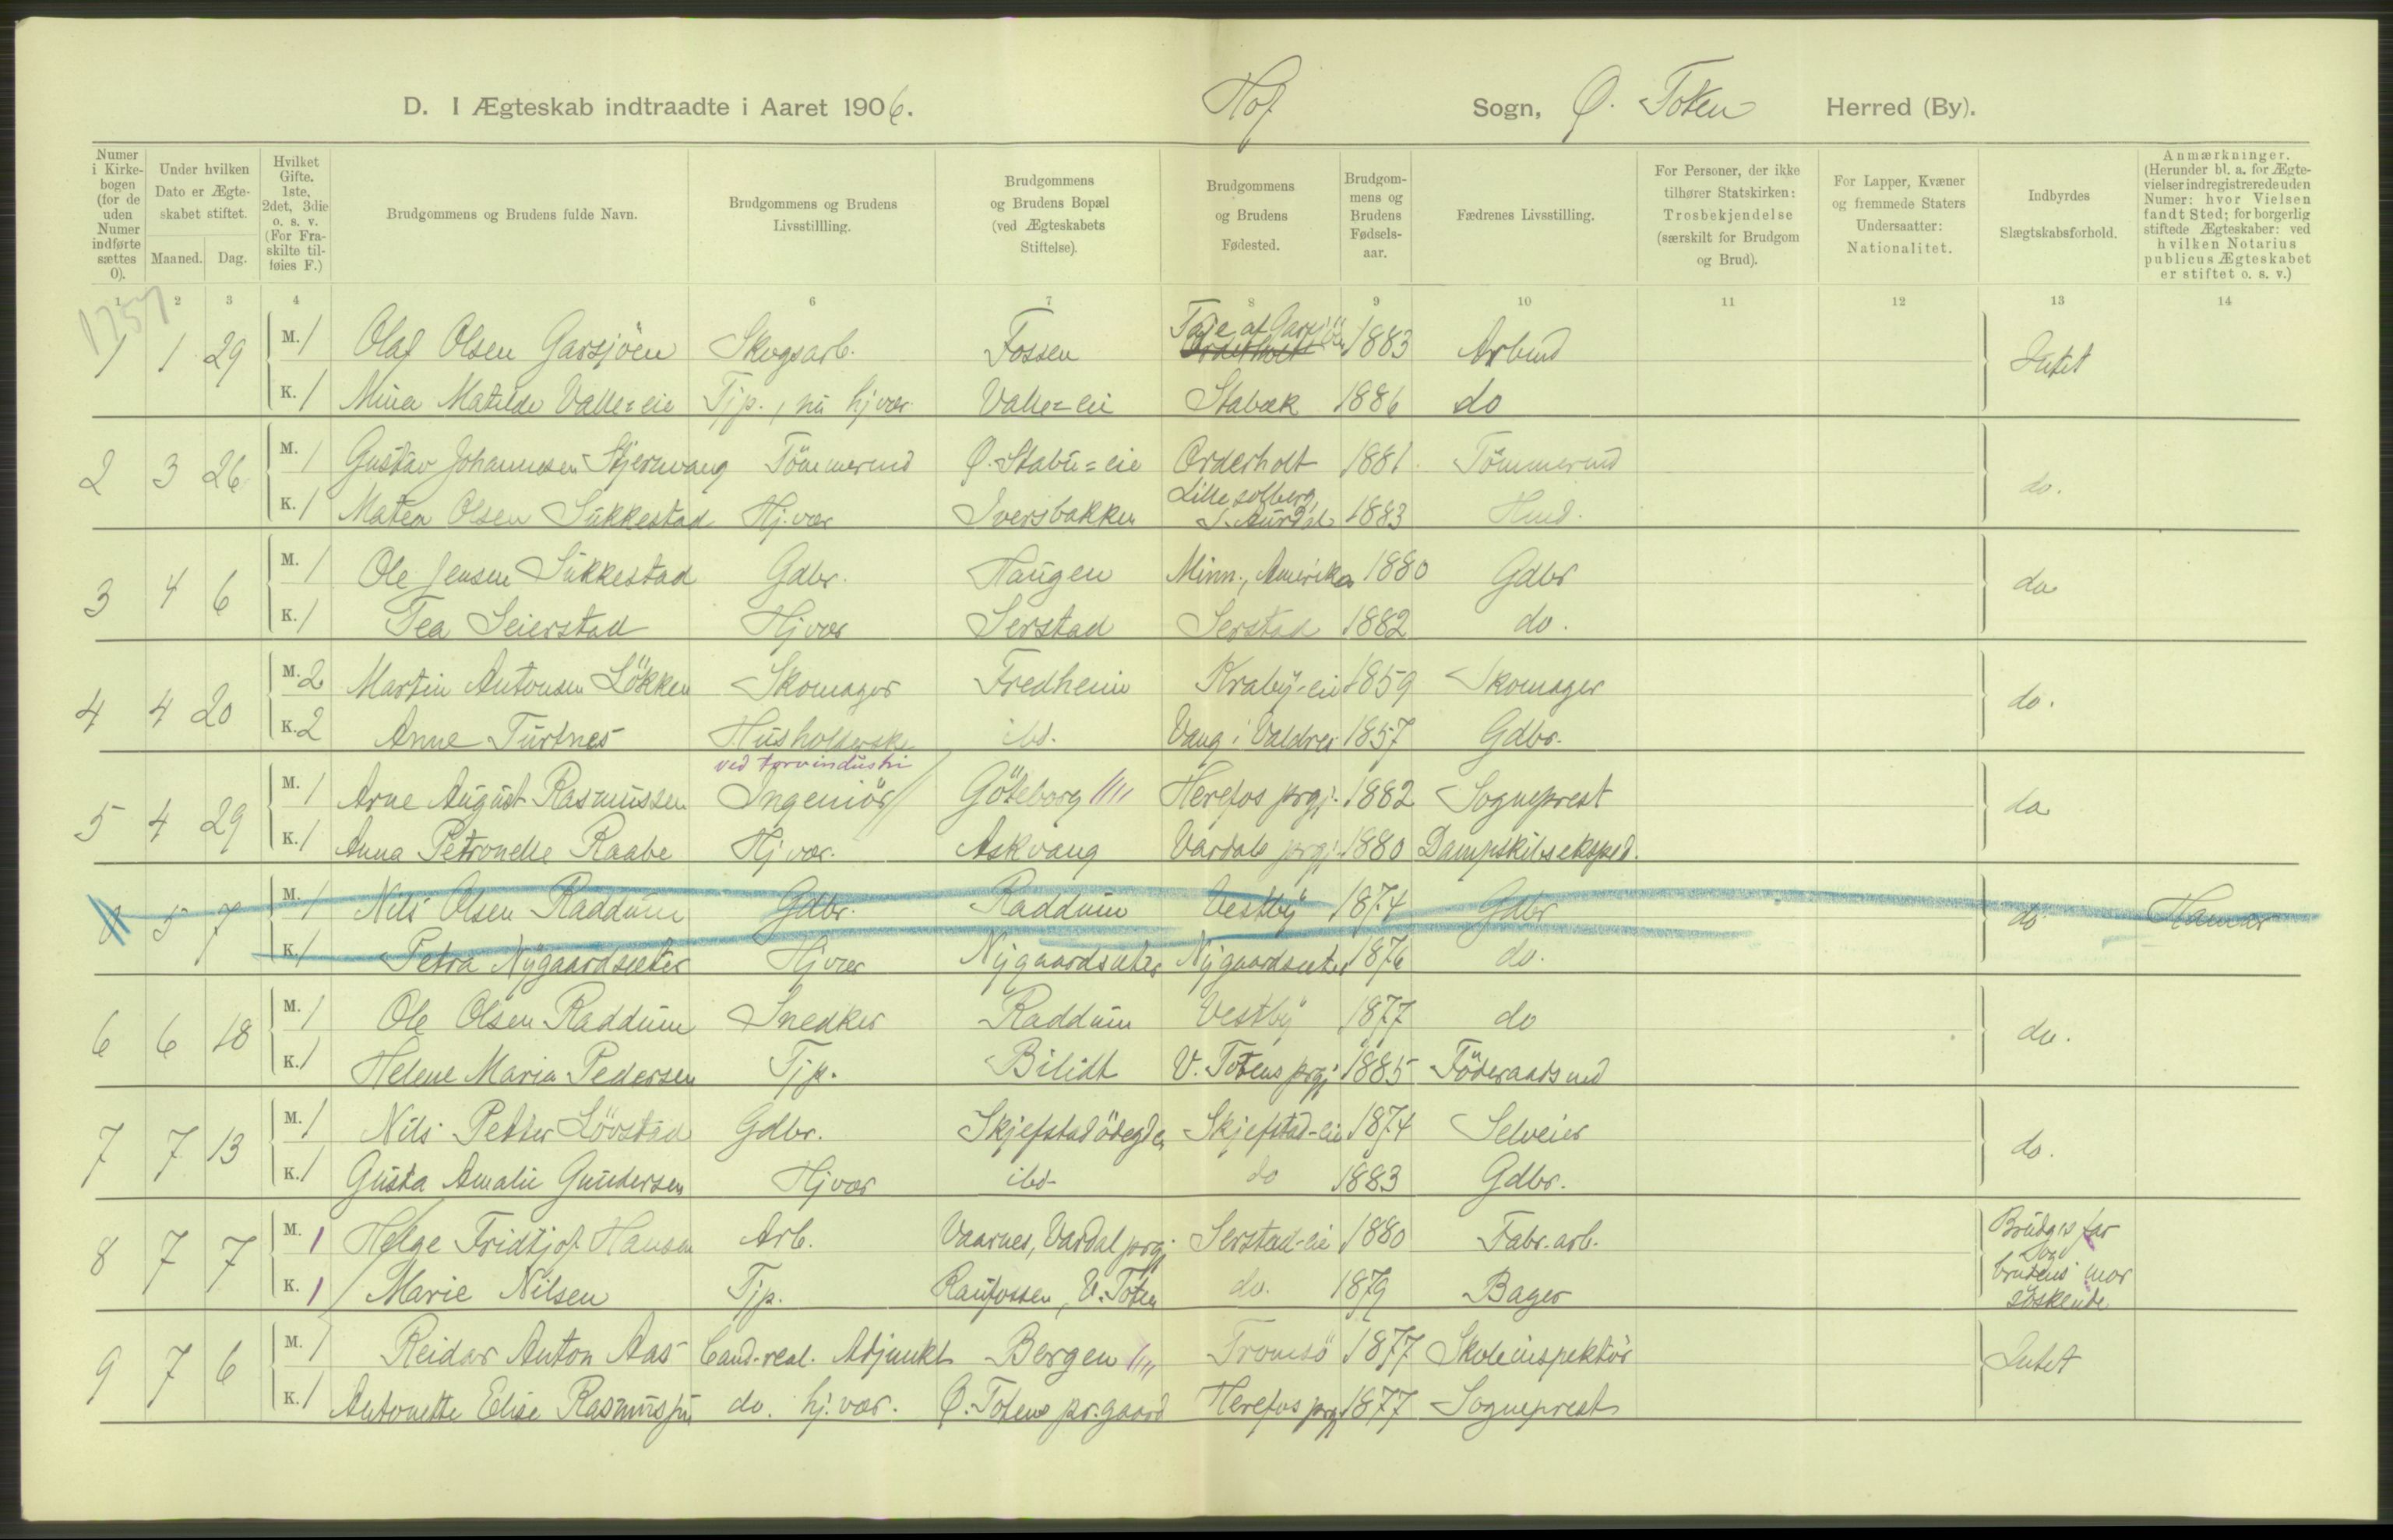 D. I Ægteskab indtraadte i Aaret 1906. Hof Sogn, Ø. Toten Herred (By).
Numer i Kirkebogen (for de uden Numer indførte sættes 0).
Under hvilken Dato er Ægteskabet stiftet.
Maaned. Dag.
Hvilket Gifte. 1ste, 2det, 3die o. s. v. (For Fraskilte tilføies F.)
Brudgommens og Brudens fulde Navn.
Brudgommens og Brudens Livsstillling.
Brudgommens og Brudens Bopæl (ved Ægteskabets Stiftelse).
Brudgommens og Brudens Fødested.
Brudgommens og Brudens Fødselsaar.
Fædrenes Livsstilling.
For Personer, der ikke tilhører Statskirken: Trosbekjendelse (særskilt for Brudgom og Brud).
For Lapper, Kvæner og fremmede Staters Undersaatter: Nationalitet.
Indbyrdes Slægtskabsforhold.
Anmærkninger. (Herunder bl. a. for Ægtevielser indregistrerede uden Numer: hvor Vielsen fandt Sted; for borgerlig stiftede Ægteskaber: ved hvilken Notarius publicus Ægteskabet er stiftet o. s. v.)
1 2 3 4 6 7 8 9 10 11 12 13 14
1757
1 1 29 M. 1 Olaf Olsen Garsjöen Skogsarb. Fossen 1883 Arbmd Intet
K. 1 Mina Matilde Valle=eie Tjp., nu hj vær. Valle=eie Stabæk 1886 do
2 3 26 M. 1 Gustav Johannesen Stjernvang Tömmermd Ø. Stabu=eie Orderholt 1881 Tömmermd do.
K. 1 Matea Olsen Sukkestad Hj. vær Iversbakken Lille solberg, S. Aurdal 1883 Hmd.
3 4 6 M. 1 Ole Jensen Sukkestad Gdbr. Haugen Minn., Amerika 1880 Gdbr do
K. 1 Tea Seierstad Hj vær Serstad Serstad 1882 do.
4 4 20 M. 2 Martin Antonsen Lökken Skomager Fredheim Kraby-eie 1859 Skomager do.
K. 2 Anne Turtnes Husholderske ibd. Vang i Valdres 1857 Gdbr.
ved torvindustri
5 4 29 M. 1 Arne August Rasmussen Ingeniör Göteborg //// Herefos prgj. 1882 Sogneprest do
K. 1 Anna Petronelle Raabe Hj vær. Askvang Vardals prgj. 1880 Dampskibseksped.
0 5 7 M. 1 Nils Olsen Raddum Gdbr. Raddum Vestby 1874 Gdbr do Hamar
K. 1 Petra Nygaardsæter Hj vær Nygaardsæter Nygaardsæter 1876 do.
6 6 18 M. 1 Ole Olsen Raddum Snedker Raddum Vestby 1877 do do.
K. 1 Helene Maria Pedersen Tjp. Bilidt V. Totens prgj 1885 Föderaadsmd
7 7 13 M. 1 Nils Petter Lövstad Gdbr. Skjefstadödegden Skjefstad-eie 1874 Selveier do.
K. 1 Gusta Amalie Gundersen Hj vær ibd. do 1883 Gdbr.
8 7 7 M. 1 Helge Fridtjof Hansen Arb. Vaarnes, Vardal prgj Serstad-eie 1880 Fabr. arb. Brudg.s far og
K. 1 Marie Nilsen Tjp. Raufossen, V. Toten do. 1879 Bager brudens mor söskende
9 7 6 M. 1 Reidar Anton Aas Cand. real. Adjunkt Bergen //// Tromsö 1877 Skoleinspektör Intet
K. 1 Antonette Elise Rasmussen do. hj. vær. Ø. Totens pr.gaard Herefos prgj 1877 Sogneprest